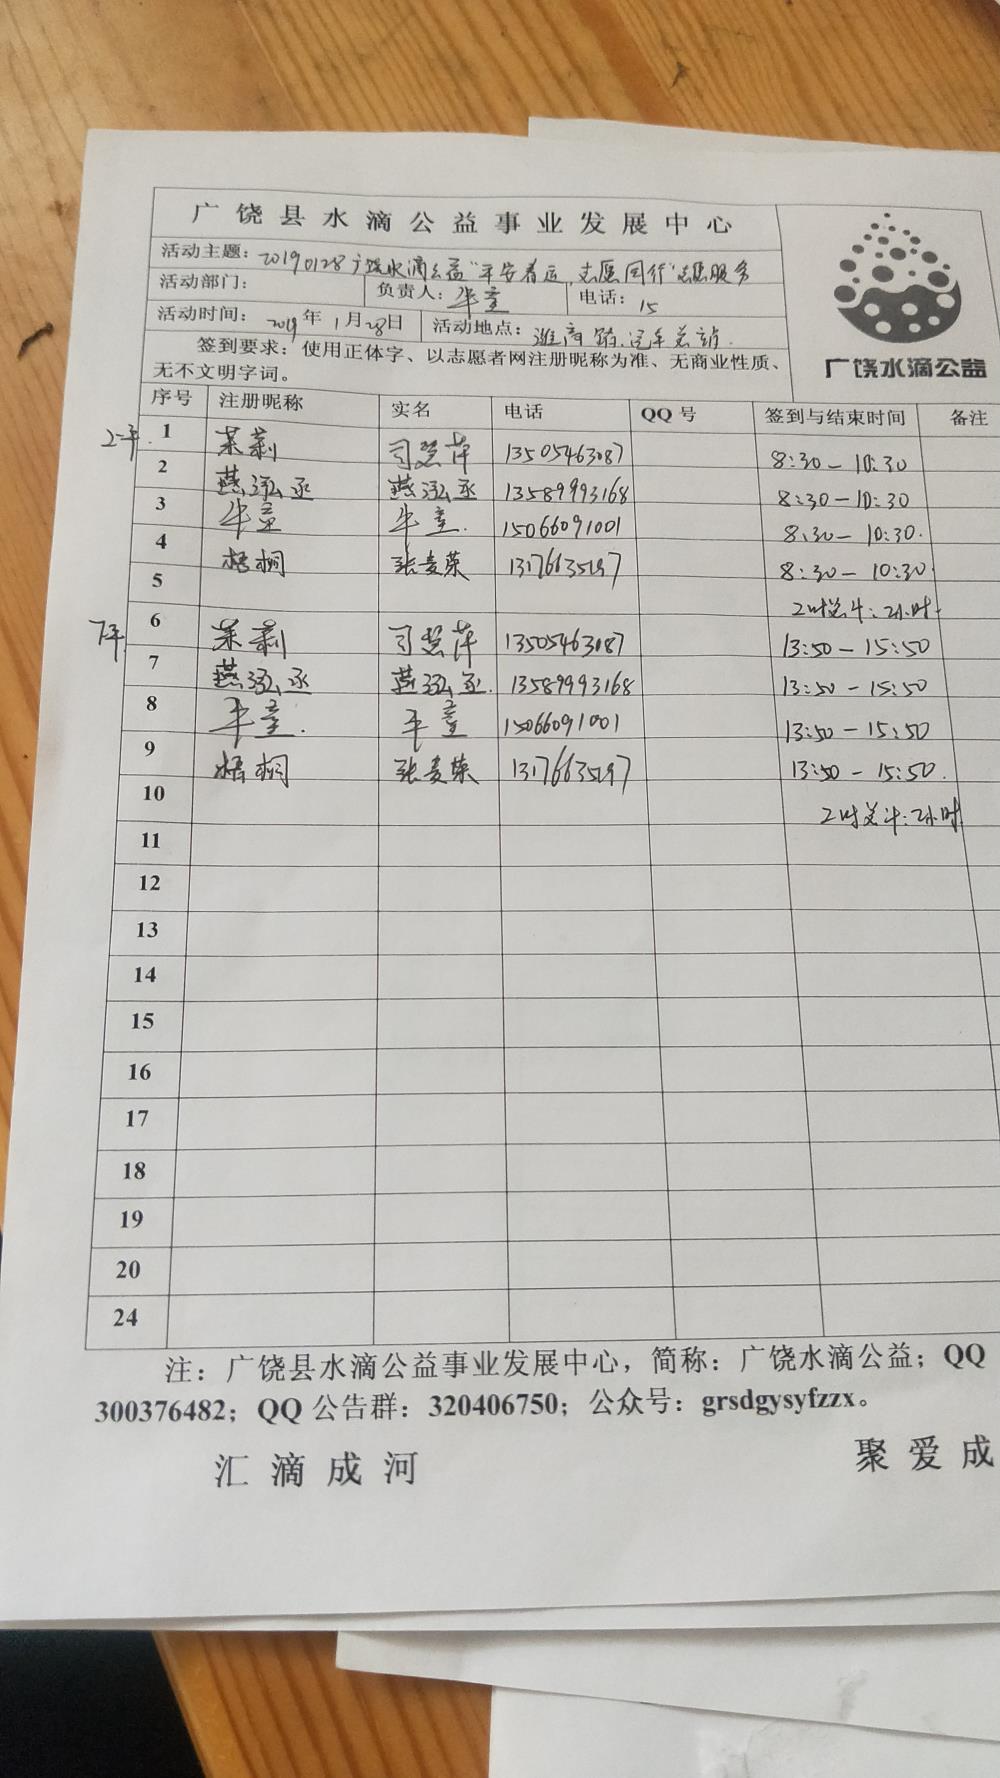 广饶县水滴公益事业发展中心
活动主题：20190128广饶水滴公益"平安春运，志愿同行"志愿服务
活动部门： 负责人：牛童 电话：15
活动时间：2019年1月28日 活动地点：潍高路汽车总站.
签到要求：使用正体字、以志愿者网注册昵称为准、无商业性质、
无不文明字词。
广饶水滴公益
序号 注册昵称 实名 电话 QQ 号 签到与结束时间 备注
上午. 1 茉莉 司慧萍 13505463087 8:30—10:30
2 燕泓丞 燕泓丞 13589993168 8:30—10:30
3 牛童 牛童. 15066091001 8:30—10:30.
4 梧桐 张爱荣 13176635197 8:30—10:30
5 工时总计:2小时
下午 6 茉莉 司慧萍 13505463087 13:50—15:50
7 燕泓丞 燕泓丞. 13589993168 13:50—15:50
8 牛童. 牛童 15066091001 13:50—15:50
9 梧桐 张爱荣 13176635197 13:50—15:50.
10 工时总计:2小时
11
12
13
14
15
16
17
18
19
20
24
注：广饶县水滴公益事业发展中心，简称：广饶水滴公益；QQ
300376482；QQ 公告群：320406750；公众号：grsdgysyfzzx。
汇滴成河 聚爱成